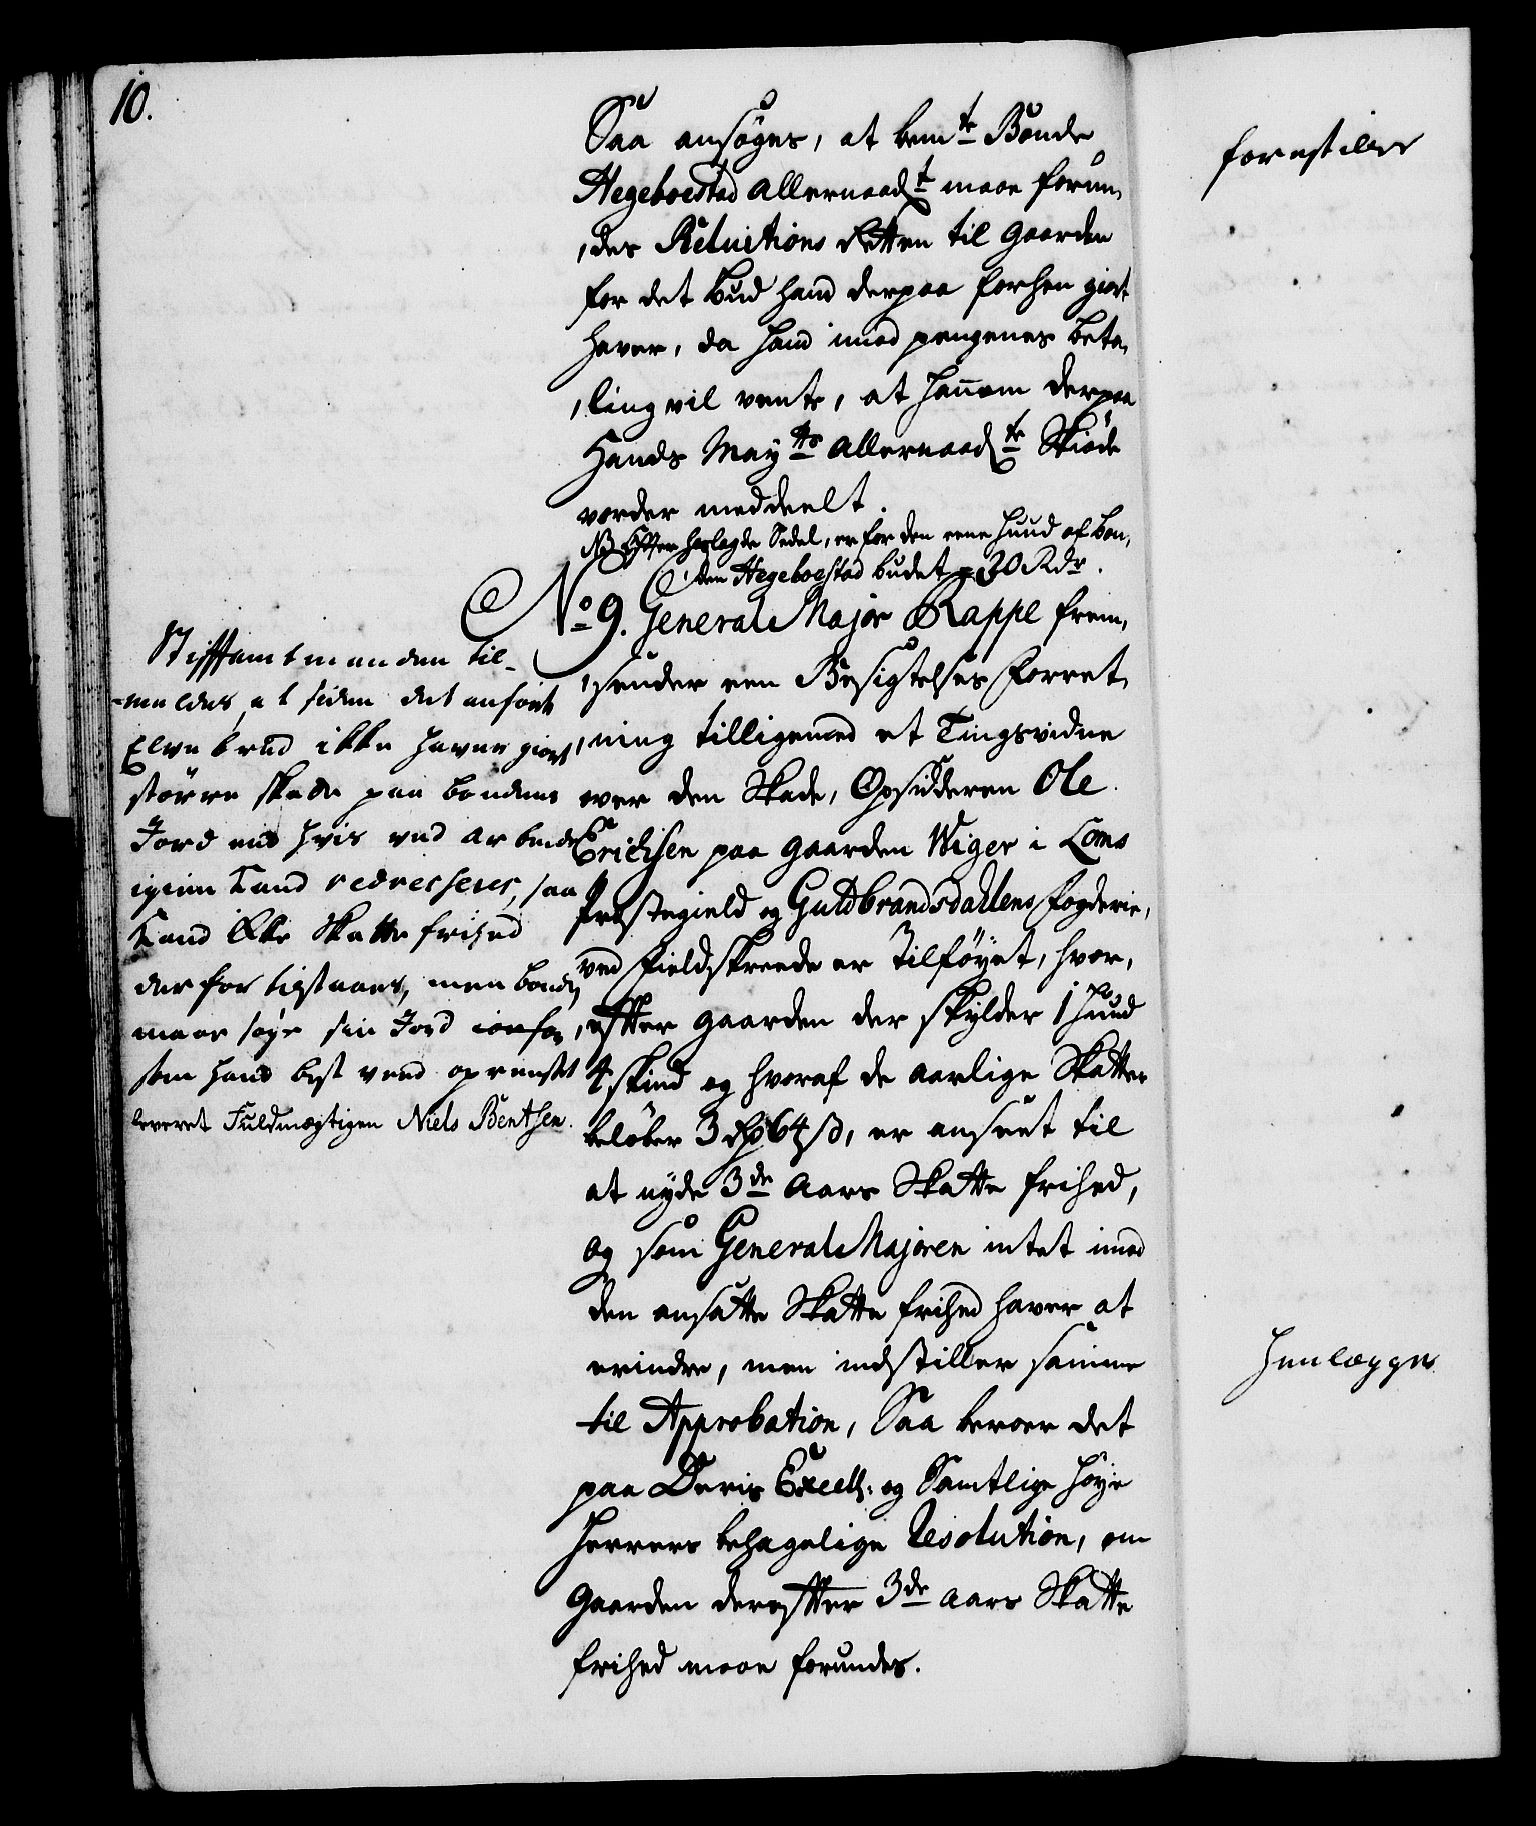 10.
Saa ansøges, at bem.te Bonde
Hegeboestad allernaad.t maae forun,
,des Reluitions Retten til gaarden
for det bud hand derpaa forhen giort
haver, da hand imod pengenes beta,
,ling vil vente, at hannem derpaa
Hands May.ts allernaad.te Skiøde
vorder meddeelt.
NB Efter hoslagde Sedel, er for den eene Huud af bon,
den Hegeboestad budet 30 Rdr.
No. 9. General Major Rappe frem,
,sender een Besigtelses Forret,
,ning tilligemed et Tingsvidne
over den Skade, Opsidderen Ole
Erichsen paa gaarden Wiger i Loms
Præstegield og Guldbrandsdahlens fogderie,
ved Fieldskreede er tilføyet, hvor,
,efter gaarden der skylder 1 Huud
4 skind og hvoraf de aarlige Skatter
beløber 3 Rd 64 s, er anseet til
at nyde 3de aars Skatte frihed,
og som General Majoren intet imod
den ansatte Skatte frihed haver at
erindre, men indstiller samme
til Approbation, Saa beroer det
paa Deris Excell: og Samtlige Høye
Herrers behagelige Resolution, om
Gaarden derefter 3de aars Skatte
frihed maae forundes.
Stifftamtmanden til-
-meldes, at siden det anførte
Elve brud ikke haver giort
større skade paa bondens
Jord end hvis ved arbeide
igien kand redresseres, saa
kand ikke Skatte frihed
derfor tilstaaes, men bonden
maae søge sin Jord
som hand best veed oprenset
leveret Fuldmægtigen Niels Bentsen.
forestilles
Henlægges